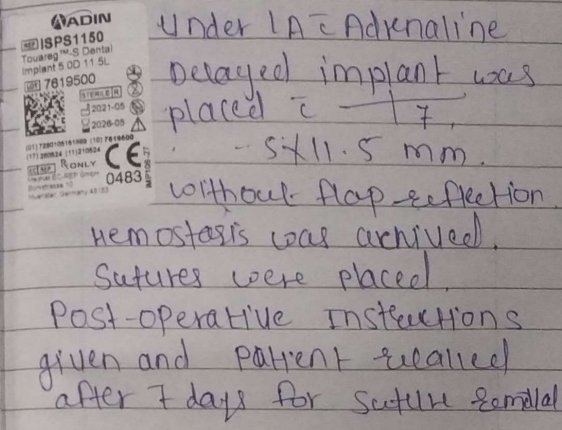 ADIN
REF ISPS1150
Touareg™-S Dental
Implant 5.0D 11.5L
LOT 7619500
STERILE R
2021-05
2026-05
(17) 260524 (11)210524
EC REP Rx ONLY
CE
0483
Under LA c̄ Adrenaline
Delayed implant was
placed c̄ 7,
- 5X11.5 mm.
without flap reflection.
Hemostasis was archived.
Sutures were placed.
Post-operative Instructions
given and patient recalled
after 7 days for suture removal